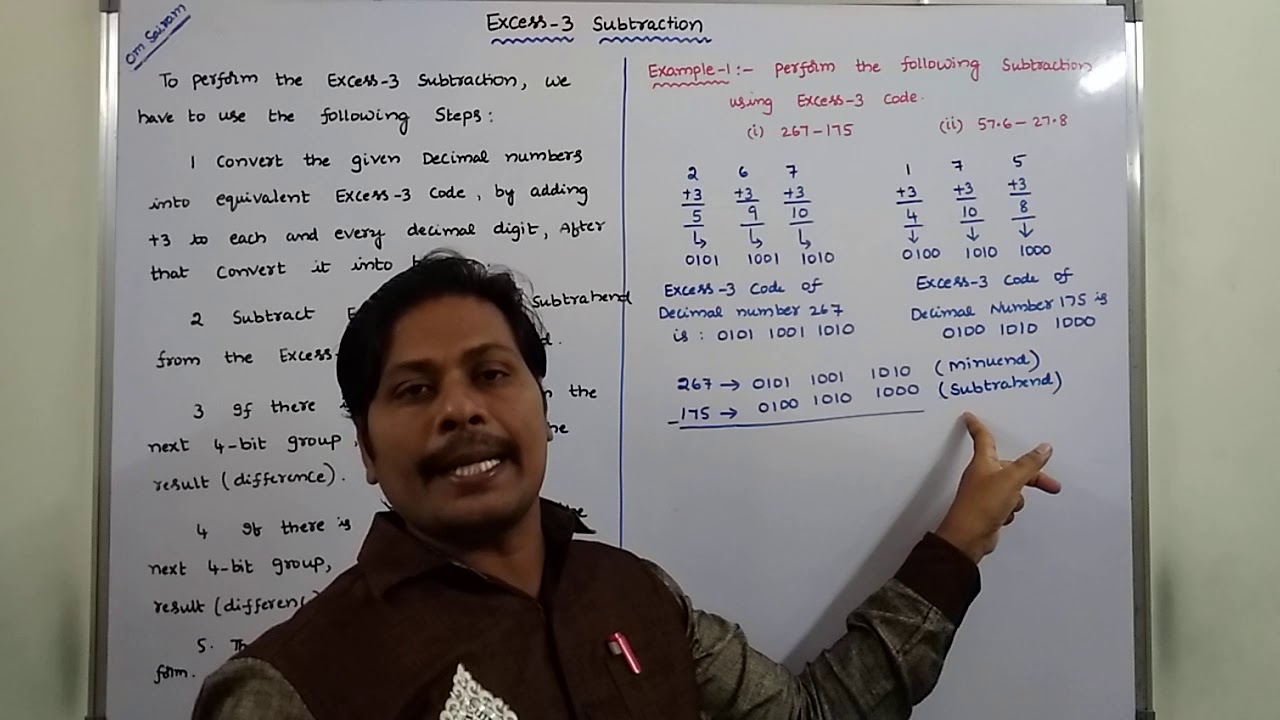 Om Sairam
Excess-3 Subtraction
To perform the Excess-3 Subtraction, we
have to use the following Steps:
1 Convert the given Decimal numbers
into equivalent Excess-3 Code, by adding
+3 to each and every decimal digit, After
that Convert it into
2 Subtract Subtrahend
from the Excess-
3 If there the
next 4-bit group
result (difference).
4 If there is
next 4-bit group,
result (differen
5.
form.
Example-1:- Perform the following Subtraction
using Excess-3 Code.
(i) 267-175 (ii) 57.6-27.8
2 6 7 1 7 5
+3 +3 +3 +3 +3 +3
5 9 10 4 10 8
↳ ↳ ↳ ↓ ↓ ↓
0101 1001 1010 0100 1010 1000
Excess-3 Code of Excess-3 Code of
Decimal number 267 Decimal Number 175 is
is : 0101 1001 1010 0100 1010 1000
267 → 0101 1001 1010 (minuend)
-175 → 0100 1010 1000 (Subtrahend)